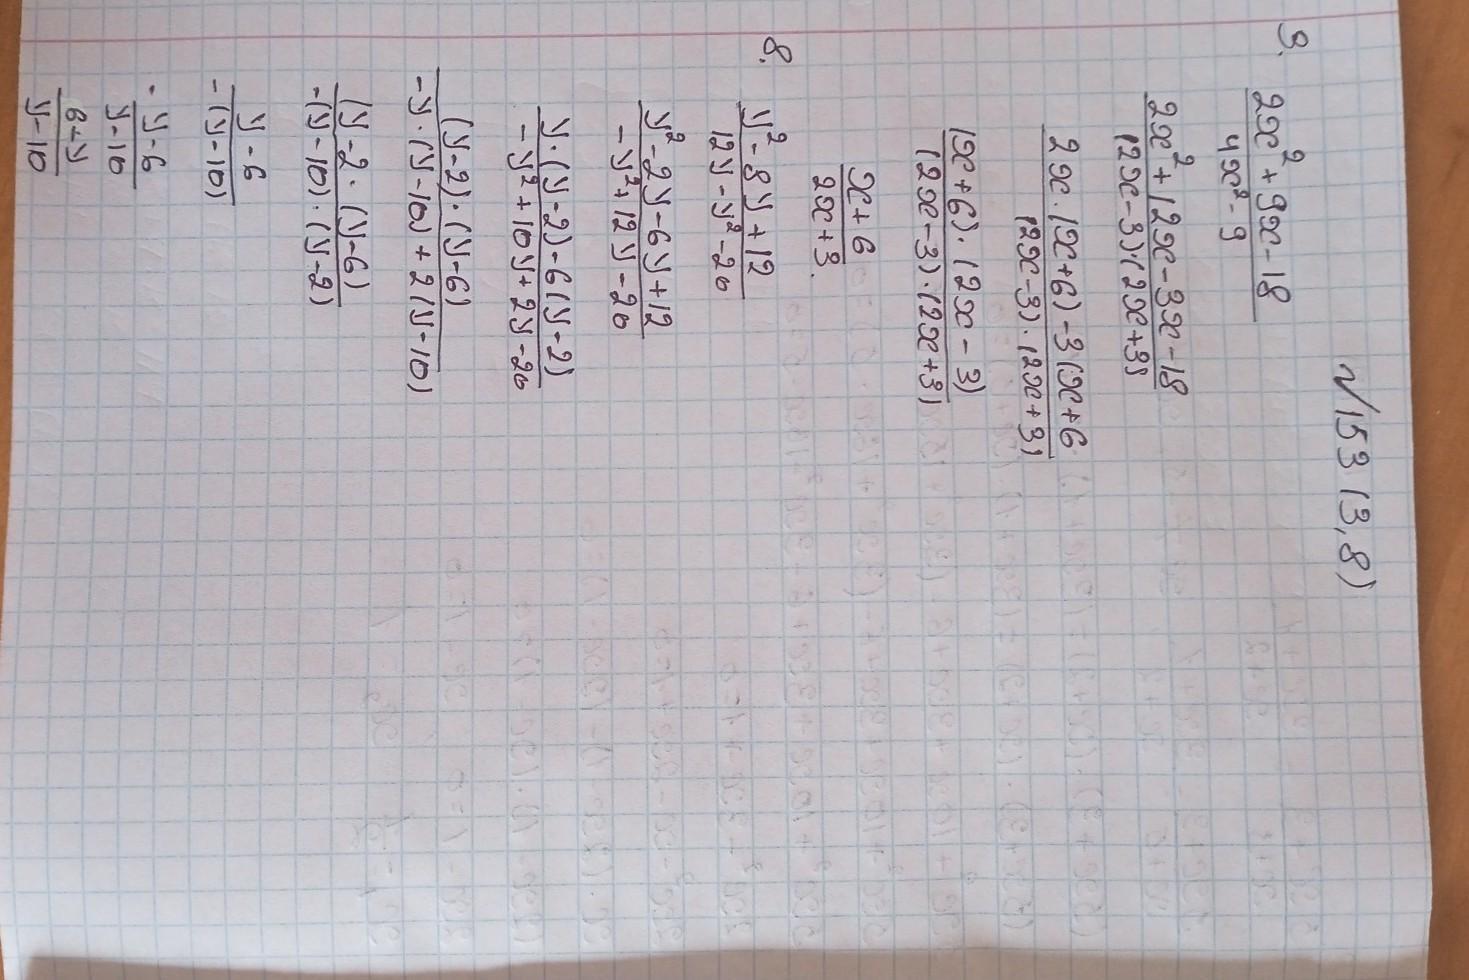 №153 (3,8)
3. (2x² + 9x - 18)/(4x² - 9)
(2x² + 12x - 3x - 18)/((2x - 3)·(2x + 3))
(2x·(x + 6) - 3(x + 6)/((2x - 3)·(2x + 3))
((x + 6)·(2x - 3))/((2x - 3)·(2x + 3))
(x + 6)/(2x + 3).
8. (y² - 8y + 12)/(12y - y² - 20)
(y² - 2y - 6y + 12)/(- y² + 12y - 20)
(y·(y - 2) - 6(y - 2))/(- y² + 10y + 2y - 20)
((y - 2)·(y - 6))/(-y·(y - 10) + 2(y - 10))
((y - 2·(y - 6))/(-(y - 10)·(y - 2))
(y - 6)/(-(y - 10))
- (y - 6)/(y - 10)
(6 - y)/(y - 10)